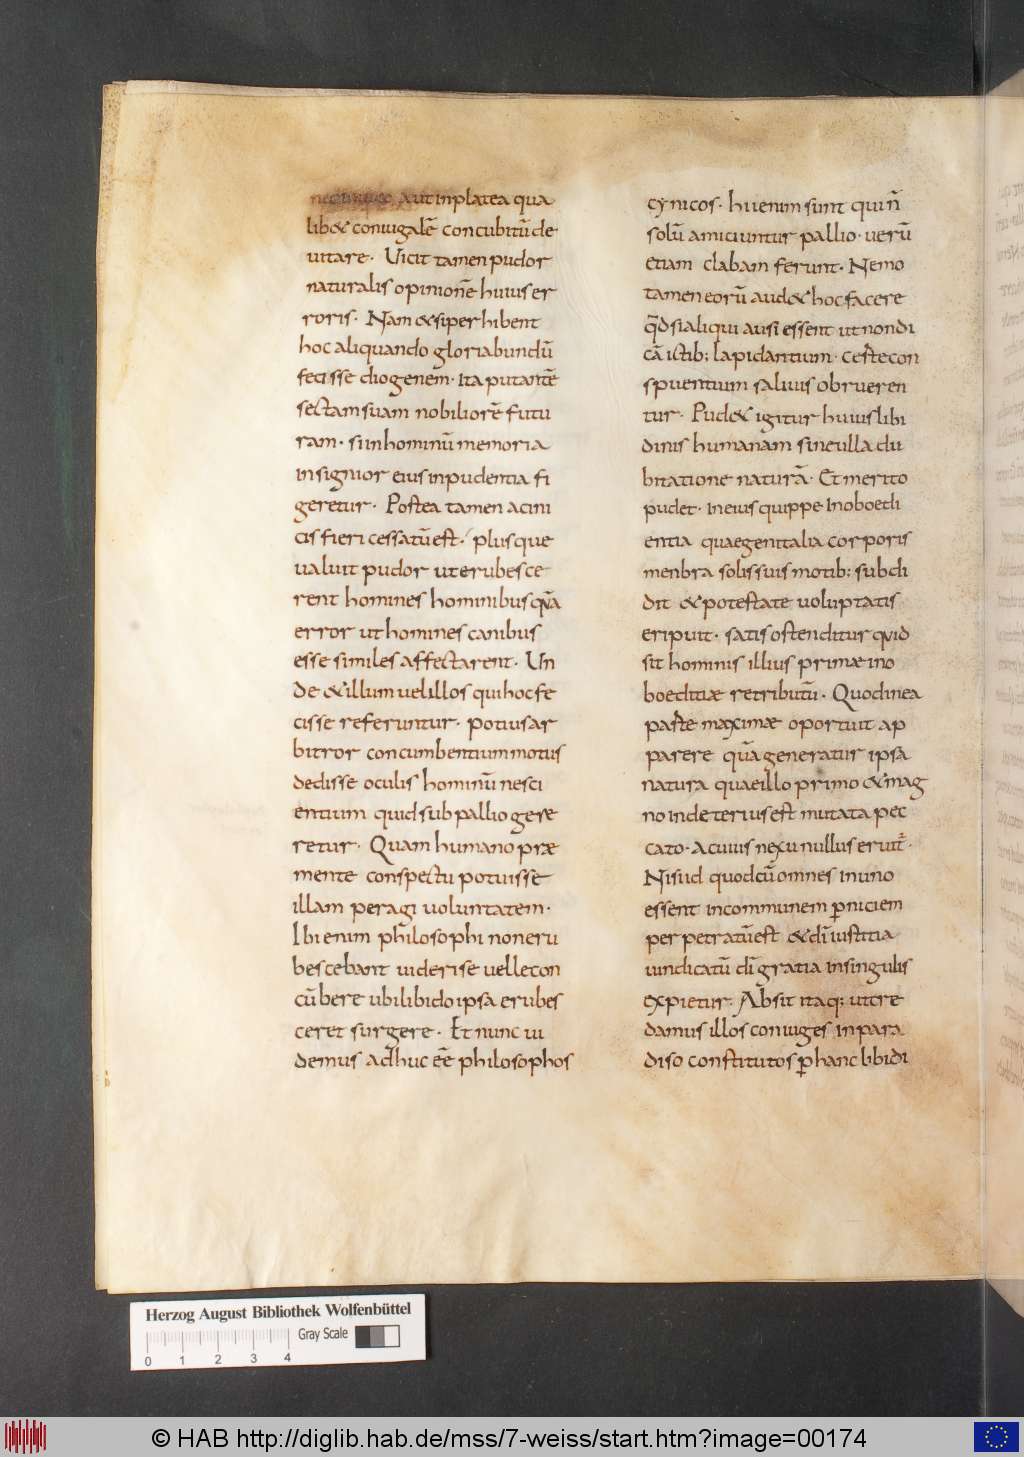 aut in platea qua
lib& coniugalē concubitū de
uitare. Uicit tamen pudor
naturalis opinionē huius er
roris. Nam & si perhibent
hoc aliquando gloriabundū
fecisse diogenem. ita putantē
sectam suam nobiliorē futu
ram. si in hominū memoria
insignior eius inpudentia fi
geretur. Postea tamen a cini
cis fieri cessatū est. plusque
ualuit pudor ut erubesce
rent homines hominibus quā
error ut homines canibus
esse similes affectarent. Un
de & illum uel illos qui hoc fe
cisse referuntur. potius ar
bitror concumbentium motus
dedisse oculis hominū nesci
entium quid sub pallio gere
retur. Quam humano præ
mente conspectu potuisse
illam peragi uoluntatem.
Ibi enim philosophi non eru
bescebant uideri se uelle con
cūbere ubi libido ipsa erubes
ceret surgere. Et nunc ui
demus adhuc eē philosophos
cynicos. hi enim sunt qui ñ
solū amiciuntur pallio. uerū
etiam clabam ferunt. Nemo
tamen eorū aud& hoc facere
q̄d si aliqui ausi essent ut non di
cā ictib; lapidantium. certe con
spuentium saliuis obrueren
tur. Pud& igitur huius libi
dinis humanam sine ulla du
bitatione naturā. Et merito
pudet. in eius quippe inoboedi
entia quae genitalia corporis
menbra solis suis motib; subdi
dit & potestate uoluptatis
eripuit. satis ostenditur quid
sit hominis illius primæ ino
boeditiæ retributū. Quod in ea
parte maximæ oportuit ap
parere quā generatur ipsa
natura quae illo primo & mag
no in deterius est mutata pec
cato. a cuius nexu nullus eruit̄.
Nisi id quod cū omnes in uno
essent in communem p̄niciem
perpetratū est & dī iustitia
uindicatū dī gratia in singulis
expietur. Absit itaq; ut cre
damus illos coniuges in para
diso constitutos p̄ hanc libidi
Herzog August Bibliothek Wolfenbüttel
Gray Scale
0 1 2 3 4
© HAB http://diglib.hab.de/mss/7-weiss/start.htm?image=00174